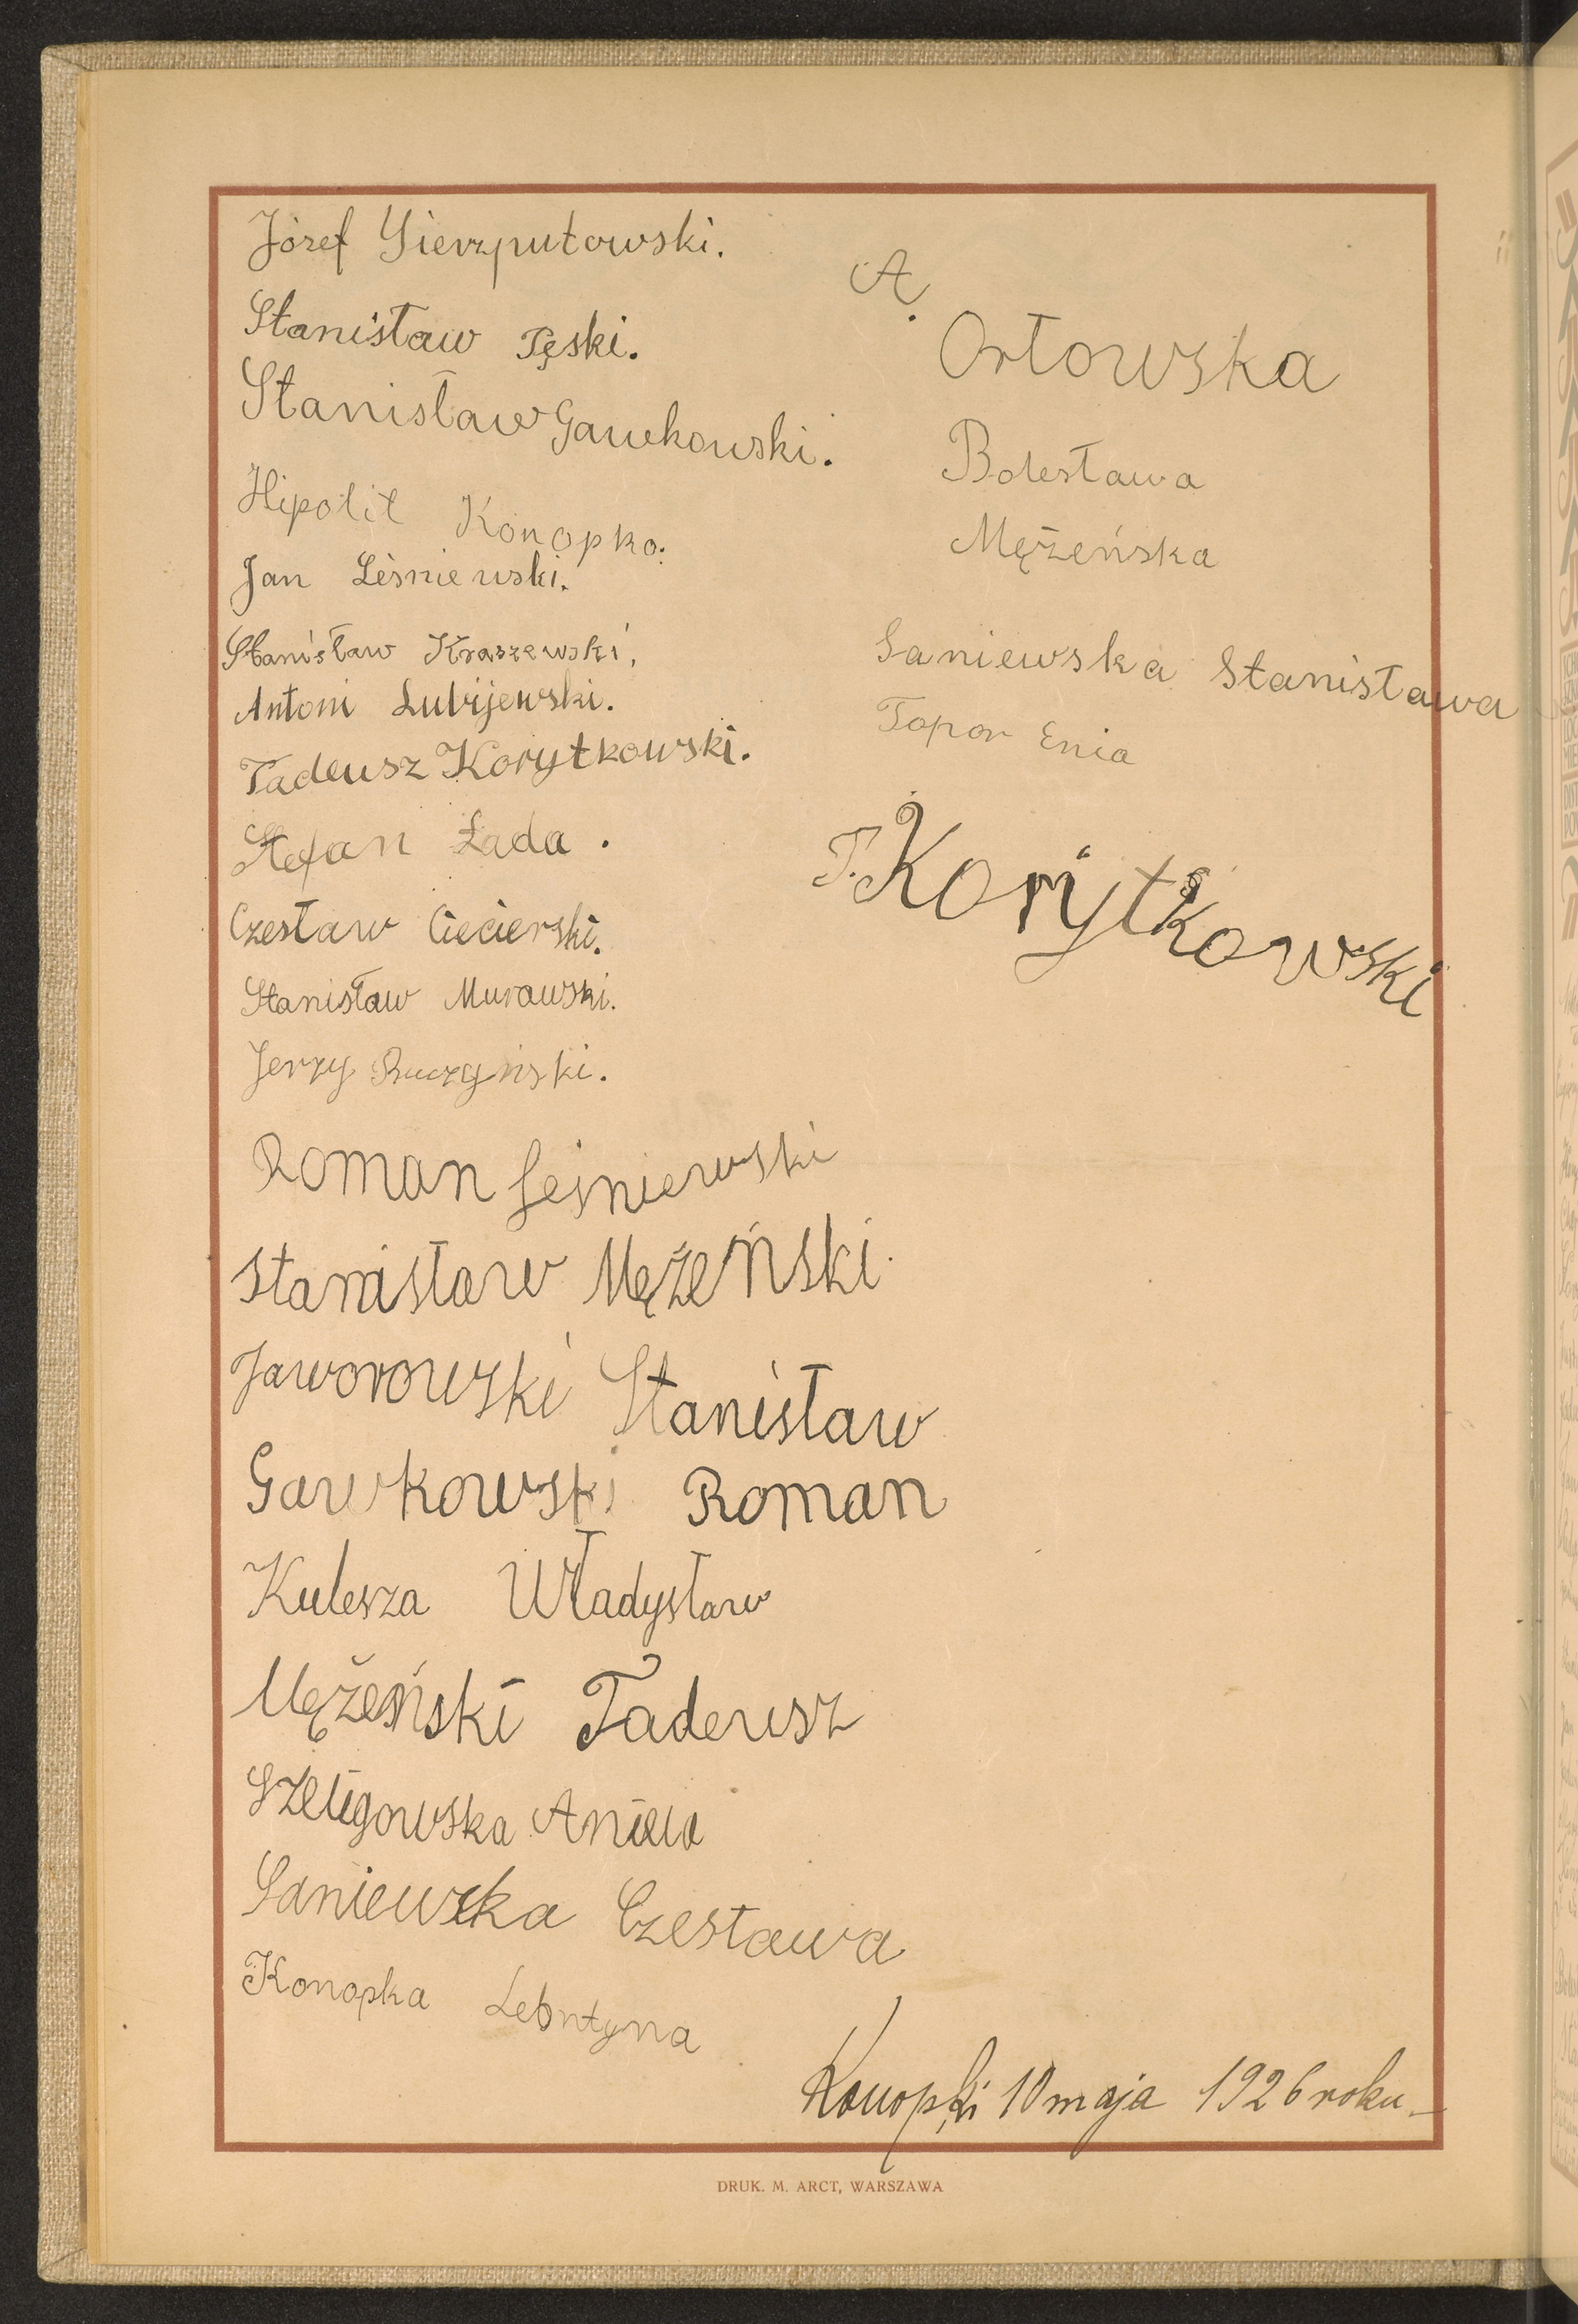 Józef Sierzputowski.
Stanisław Pęski.
Stanisław Gawkowski.
Hipolit Konopko.
Jan Leśniewski.
Stanisław Kraszewski.
Antoni Lubijewski.
Tadeusz Korytkowski.
Stefan Łada.
Czesław Ciecierski.
Stanisław Murawski.
Jerzy Ruczyński.
Roman Leśniewski
Stanisław Mężeński
Jaworowski Stanisław
Gawkowski Roman
Kulesza Władysław
Mężeński Tadeusz
Szeligowska Aniela
Saniewska Czesława
Konopka Leontyna
A.
Orłowska
Bolesława
Mężeńska
Saniewska Stanisława
Topor Enia
T. Korytkowski
Konopki 10 maja 1926 roku –
DRUK. M. ARCT, WARSZAWA